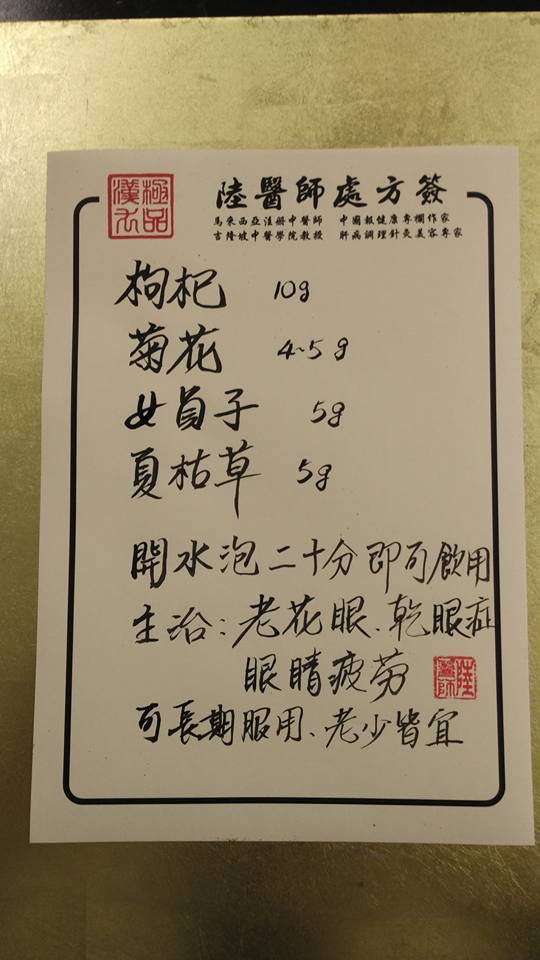 極品漢方
陸醫師處方簽
馬來西亞注册中醫師 中國報健康專欄作家
吉隆坡中醫學院教授 肝病調理針灸美容專家
枸杞 10g
菊花 4-5g
女員子 5g
夏枯草 5g
開水泡二十分即可飲用
主治：老花眼、乾眼症
眼睛疲劳
陸醫師
可長期服用、老少皆宜